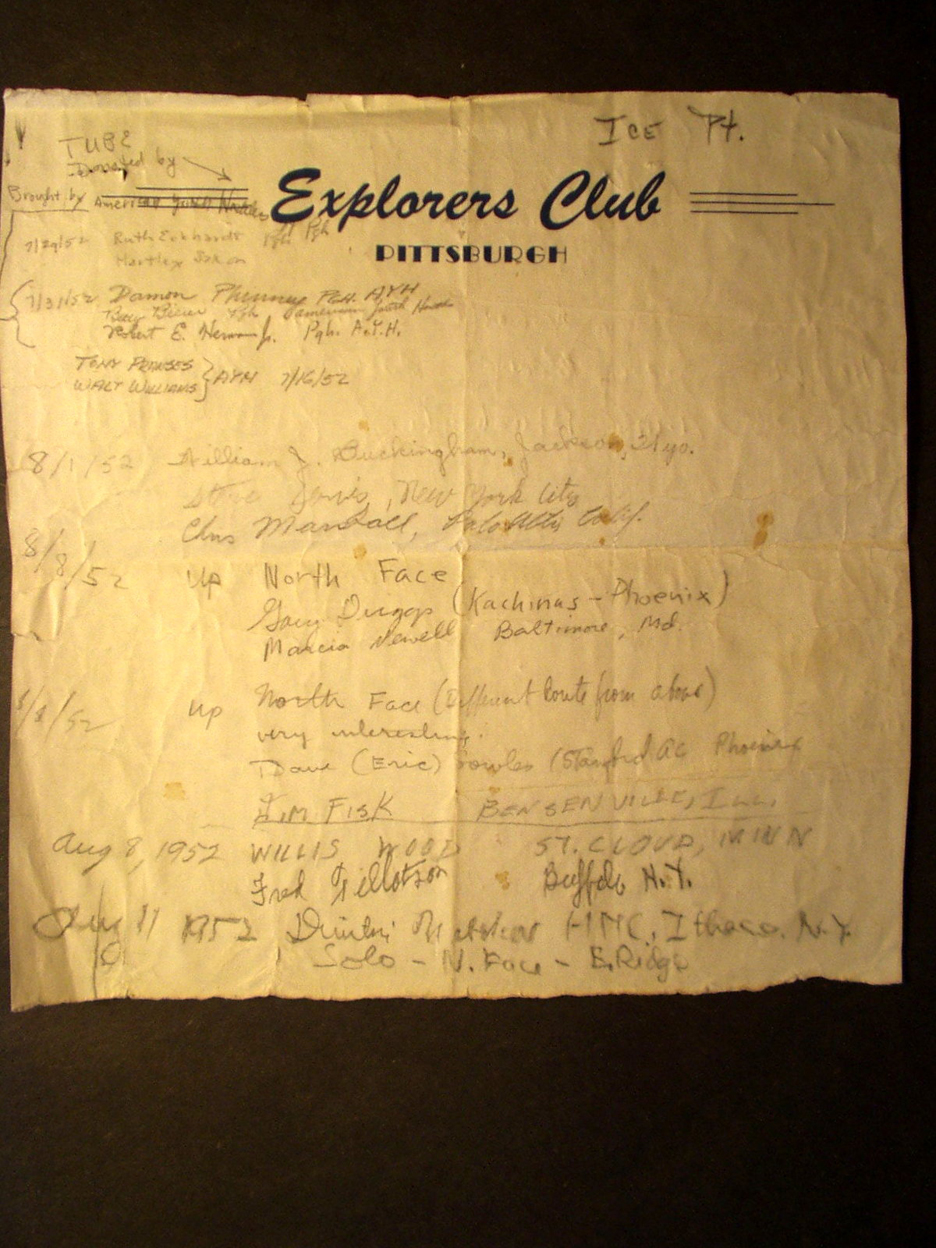 ICE Pt.
TUBE
Donated by
Explorers Club
PITTSBURGH
Brought by American Youth
7/29/52 Ruth Eckhardt Pgh
Hartley
7/31/52 Damon Phinney Pgh. AYH
Betty Pgh American Youth
Robert E. Herman Jr. Pgh. A.Y.H.
TONY
WALT WILLIAMS } AYH 7/16/52
8/1/52 William J. Buckingham, Jackson, Wyo.
Steve Jervis, New York City
Chris Palo Alto Calif.
8/8/52 Up North Face
Gary Driggs (Kachinas - Phoenix)
Marcia Newell Baltimore, Md.
8/8/52 up North Face (Different Route from above)
very interesting.
Dave (Eric) (Stanford AC Phoenix
JIM FISK BENSENVILLE, ILL.
Aug 8, 1952 WILLIS WOOD ST. CLOUD, MINN
Fred Buffalo N.Y.
11 1952 Ithaca. N.Y.
Solo - N. Face - E. Ridge